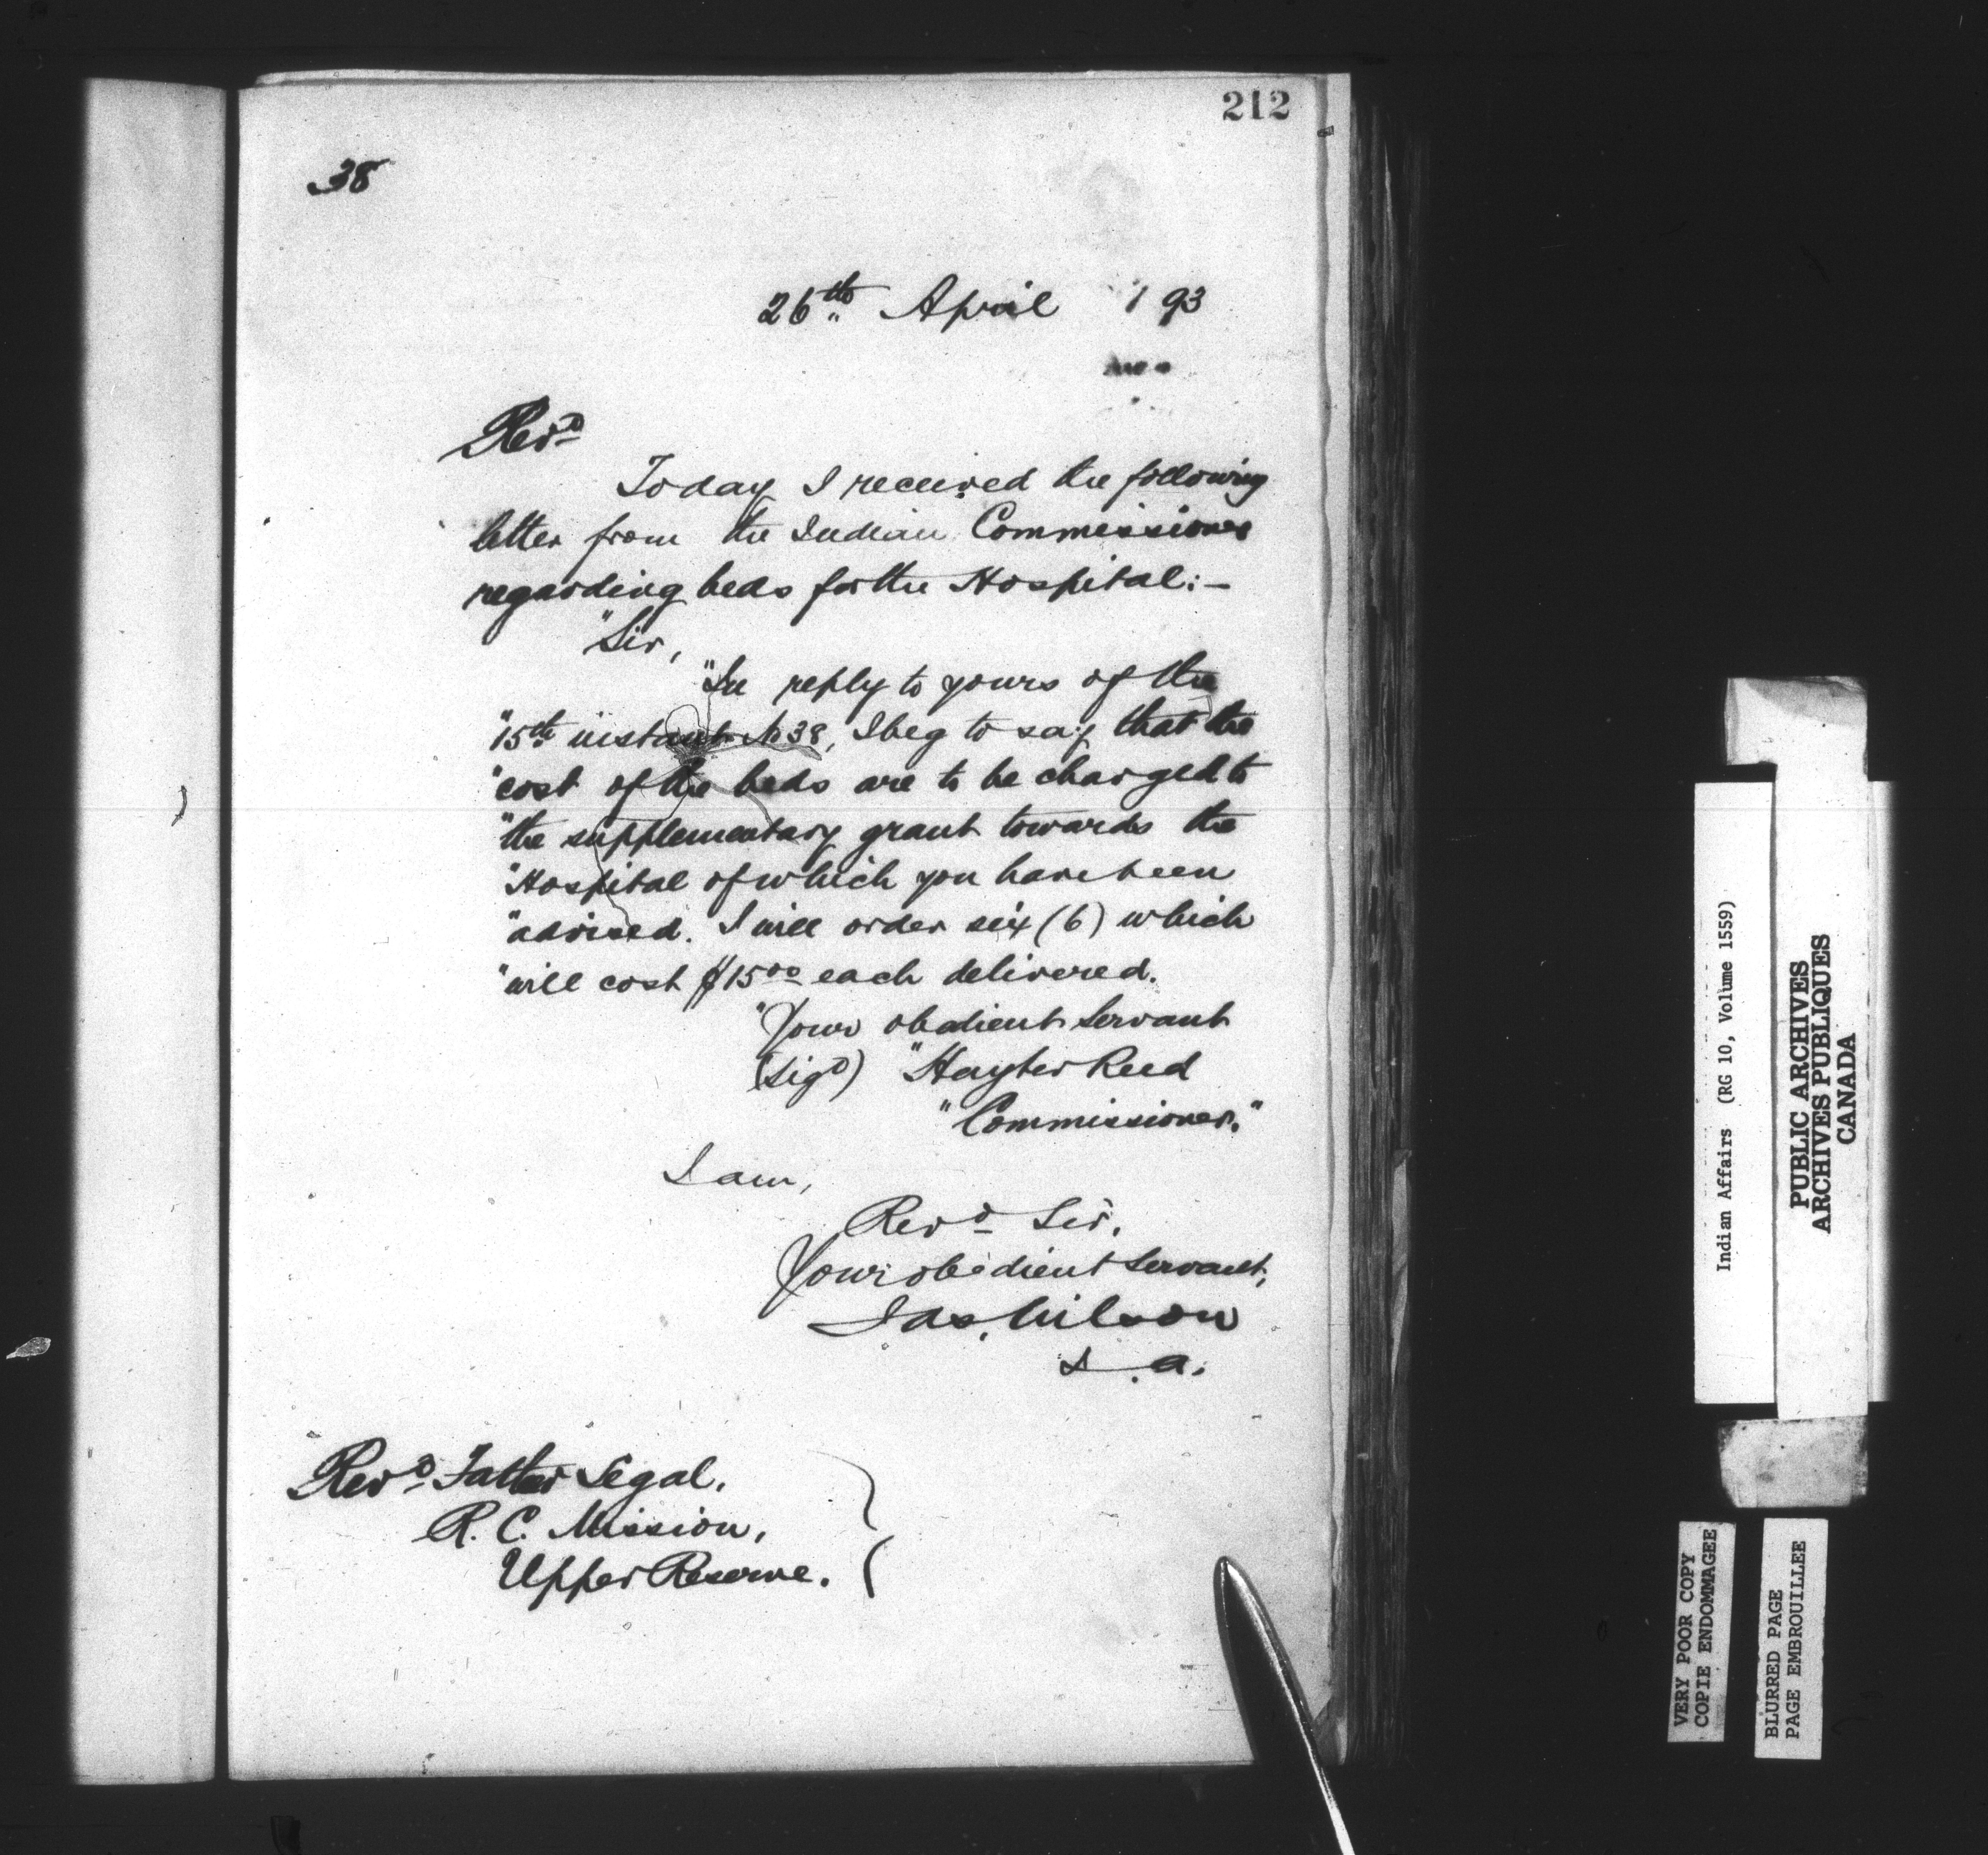 212
38
26th April 193
Revd
Today I received the following
letter from the Indian Commissioner
regarding beds for the Hospital:—
"Sir,
"In reply to yours of the
"15th instant No 38, I beg to say that the
"cost of the beds are to be charged to
"the supplementary grant towards the
"Hospital of which you have been
"advised. I will order six (6) which
"will cost $15 00 each delivered.
"Your obedient servant
(Sigd) "Hayter Reed
"Commissioner."
I am,
Revd Sir,
Your obedient servant,
Jas. Wilson
I. A.
Revd Father Legal,
R. C. Mission,
Upper Reserve.
Indian Affairs (RG 10, Volume 1559)
PUBLIC ARCHIVES
ARCHIVES PUBLIQUES
CANADA
VERY POOR COPY
COPIE ENDOMMAGEE
BLURRED PAGE
PAGE EMBROUILLEE